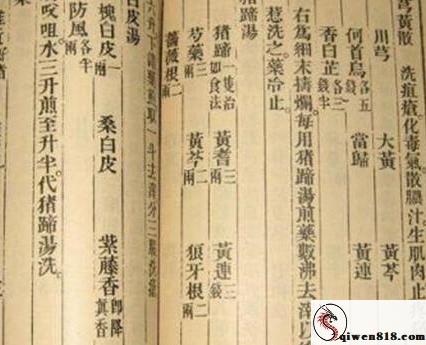 黃散 洗痕瘡化毒氣散膿汁生肌肉止
川芎 大黃 黃芩
何首烏各五錢 當歸 黃連
香白芷各三錢半
右為細末擣爛每用猪蹄湯煎藥數沸去滓以
惹洗之藥冷止
蹄湯
猪蹄一隻治如食法 黃耆三兩 黃連三錢
芍藥三兩 黃芩二兩 狼牙根二兩
薔薇根二兩
一斗去滓分
白皮湯
槐白皮一兩 桑白皮 紫藤香即降真香
防風各半兩
㕮咀水三升煎至升半代猪蹄湯洗
qiwen818.com